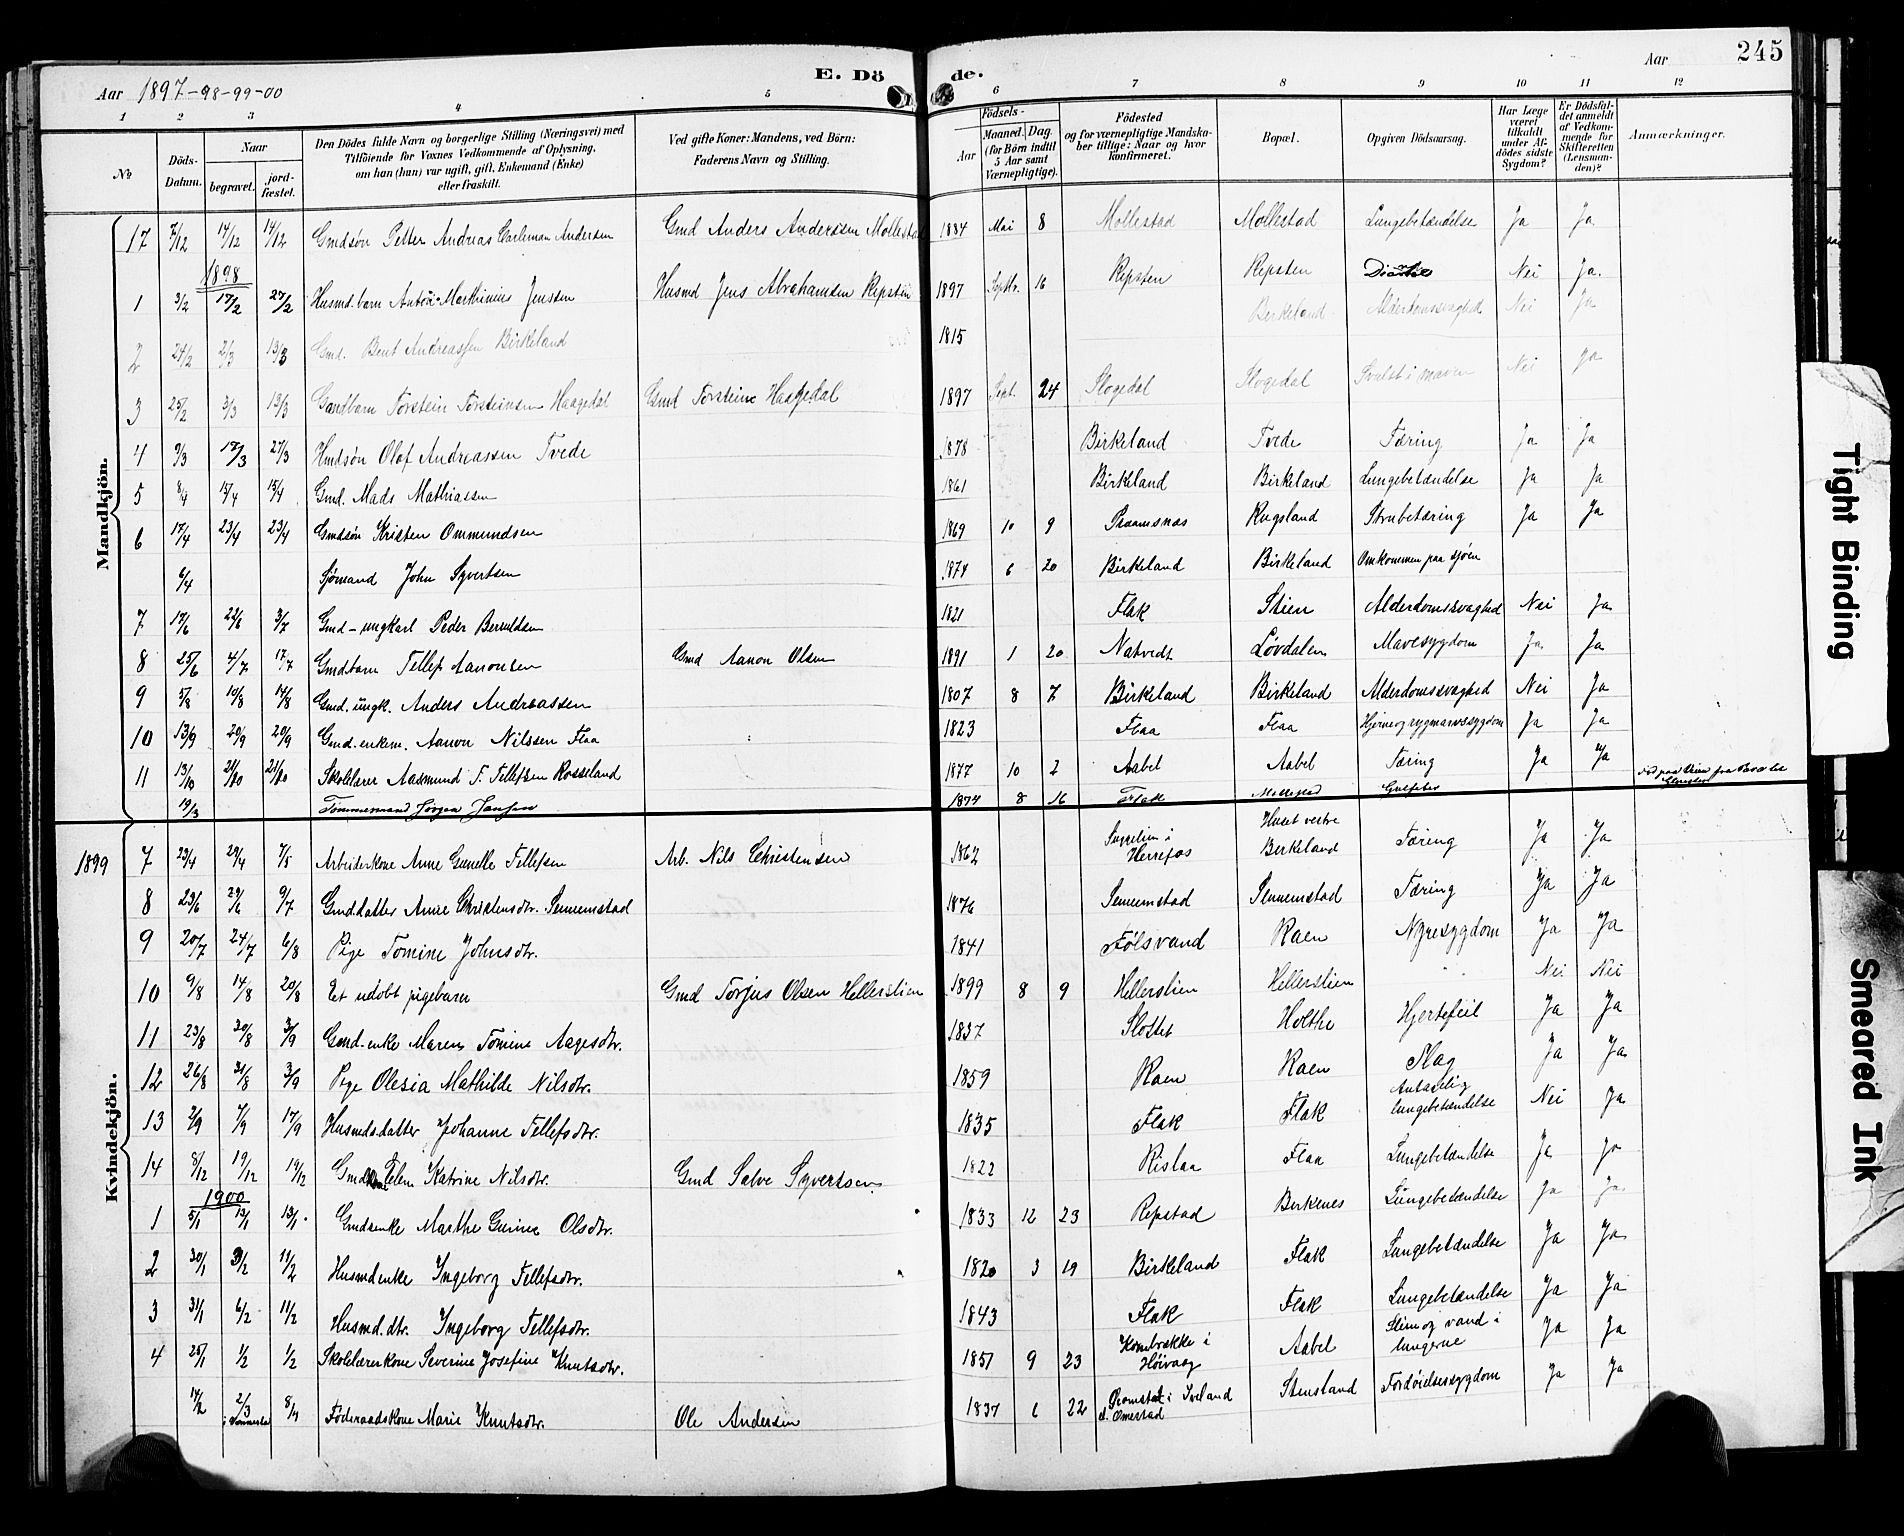 E. Döde.
Aar 1897-98-99-00
Aar
245
1 2 3 4 5 6 7 8 9 10 11 12
No
Döds-Datum.
Naar begravet. jordfæstet.
Den Dödes fulde Navn og borgerlige Stilling (Næringsvei) med Tilföiende for Voxnes Vedkommende af Oplysning, om han (hun) var ugift, gift, Enkemand (Enke) eller fraskilt.
Ved gifte Koner: Mandens, ved Börn: Faderens Navn og Stilling.
Födsels- Aar Maaned. Dag. (for Börn indtil 5 Aar samt Værnepligtige).
Födested og for værnepligtige Mandskaber tillige: Naar og hvor konfirmeret.
Bopæl.
Opgiven Dödsaarsag.
Har Læge været tilkaldt under Afdödes sidste Sygdom?
Er Dödsfaldet anmeldt af Vedkommende for Skifteretten (Lensmanden)?
Anmærkninger.
Mandkjön.
17 7/12 14/12 14/12 Gmdsøn Petter Andreas Carleman Andersen Gmd Anders Anderssen Mollestad 1884 Mai 8 Mollestad Mollestad Lungebetændelse Ja Ja
1898
1 3/2 17/2 27/2 Husmd.barn Anton Marthinius Jenssen Husmd Jens Abrahamsen Repsten 1897 Septbr. 16 Repsten Repsten Nei Ja.
2 24/2 2/3 13/3 Gmd. Bent Andreassen Birkeland 1815 Birkeland Alderdomssvaghed Nei Ja
3 25/2 3/3 13/3 Gmdbarn Torstein Torsteinsen Haagedal Gmd Torstein Haagedal 1897 Sept. 24 Slogedal Slogedal Svulst i maven Nei Ja
4 9/3 17/3 27/3 Hmdsøn Olaf Andreassen Tvede 1878 Birkeland Tvede Tæring Ja Ja
5 8/4 15/4 15/4 Gmd. Mads Mathiassen 1861 Birkeland Birkeland Lungebetændelse Ja Ja
6 17/4 23/4 23/4 Gmdsøn Kristen Ommundsen 1869 10 9 Paamsnæs Rugsland Strubetæring Ja Ja
6/4 Sjømand John Syvertsen 1874 6 20 Birkeland Birkeland Omkommen paa sjøen
7 17/6 22/6 3/7 Gmd-ungkarl Peder Beruldsen 1821 Flak Stien Alderdomssvaghed Nei Ja
8 25/6 4/7 17/7 Gmdbarn Tellef Aanonsen Gmd Aanon Olsen 1891 1 20 Natvedt Løvdalen Mavesygdom Ja Ja
9 5/8 10/8 14/8 Gmd.ungk. Anders Andreassen 1807 8 7 Birkeland Birkeland Alderdomssvaghed Nei Ja
10 13/9 20/9 20/9 Gmd.enkem. Aanon Nilssen Flaa 1823 Flaa Flaa Hjerne og rygmarvssygdom Ja Ja
11 13/10 21/10 21/10 Skolelærer Aasmund T. Tellefsen Rosseland 1877 10 2 Aabel Aabel Tæring Ja Ja
19/3 Tømmermand Jørgen Jansen 1874 8 16 Flak Mollestad Gulfeber
Kvindekjön.
1899
7 23/4 29/4 7/5 Arbeiderkone Anne Gunelle Tellefsen Arb. Nils Christensen 1862 Herrefos Huset vestre Birkeland Tæring Ja Ja
8 23/6 29/6 9/7 Gmd.datter Anne Christensdtr. Senumstad 1876 Senumstad Senumstad Tæring Ja Ja
9 20/7 24/7 6/8 Pige Tomine Johnsdtr. 1841 Følsvand Raen Nyresygdom Ja Ja
10 9/8 14/8 20/8 Et udøbt pigebarn Gmd Torjus Olsen Hellerslien 1899 8 9 Hellerslien Hellerslien Nei Nei
11 23/8 30/8 3/9 Gmd.enke Maren Tomine Aagesdtr. 1837 Slottet Holthe Hjertefeil Ja Ja
12 26/8 31/8 3/9 Pige Olesia Mathilde Nilsdtr. 1859 Raen Raen Slag Ja Ja
13 2/9 7/9 17/9 Husmdsdatter Johanne Tellefsdtr. 1835 Flak Flak Antagelig lungebetændelse Nei Ja
14 8/12 19/12 19/12 Gmdkone Elen Katrine Nilsdtr. Gmd Salve Syvertsen 1822 Rislaa Flaa Lungebetændelse Ja Ja
1900
1 5/1 13/1 13/1 Gmdsenke Marthe Gurine Olsdtr. 1833 12 23 Repstad Birkenes Lungebetændelse Ja Ja
2 30/1 3/2 11/2 Husmdenke Ingeborg Tellefsdtr. 1820 3 19 Birkeland Flak Lungebetændelse Ja Ja
3 31/1 6/2 11/2 Husmd.dtr. Ingeborg Tellefsdtr. 1843 Flak Flak Lungebetændelse Ja Ja
4 25/1 1/2 1/2 Skolelærerkone Severine Josefine Knutsdtr. 1851 9 23 Kornbrække i Høivaag Aabel Slim og vand i lungerne Ja Ja
17/2 2/3 8/4 Føderaadskone Marie Knutsdtr. Ole Andersen 1837 6 22 i Iveland Stensland Fordøielsessygdom Ja Ja
Tight Binding
Smeared Ink